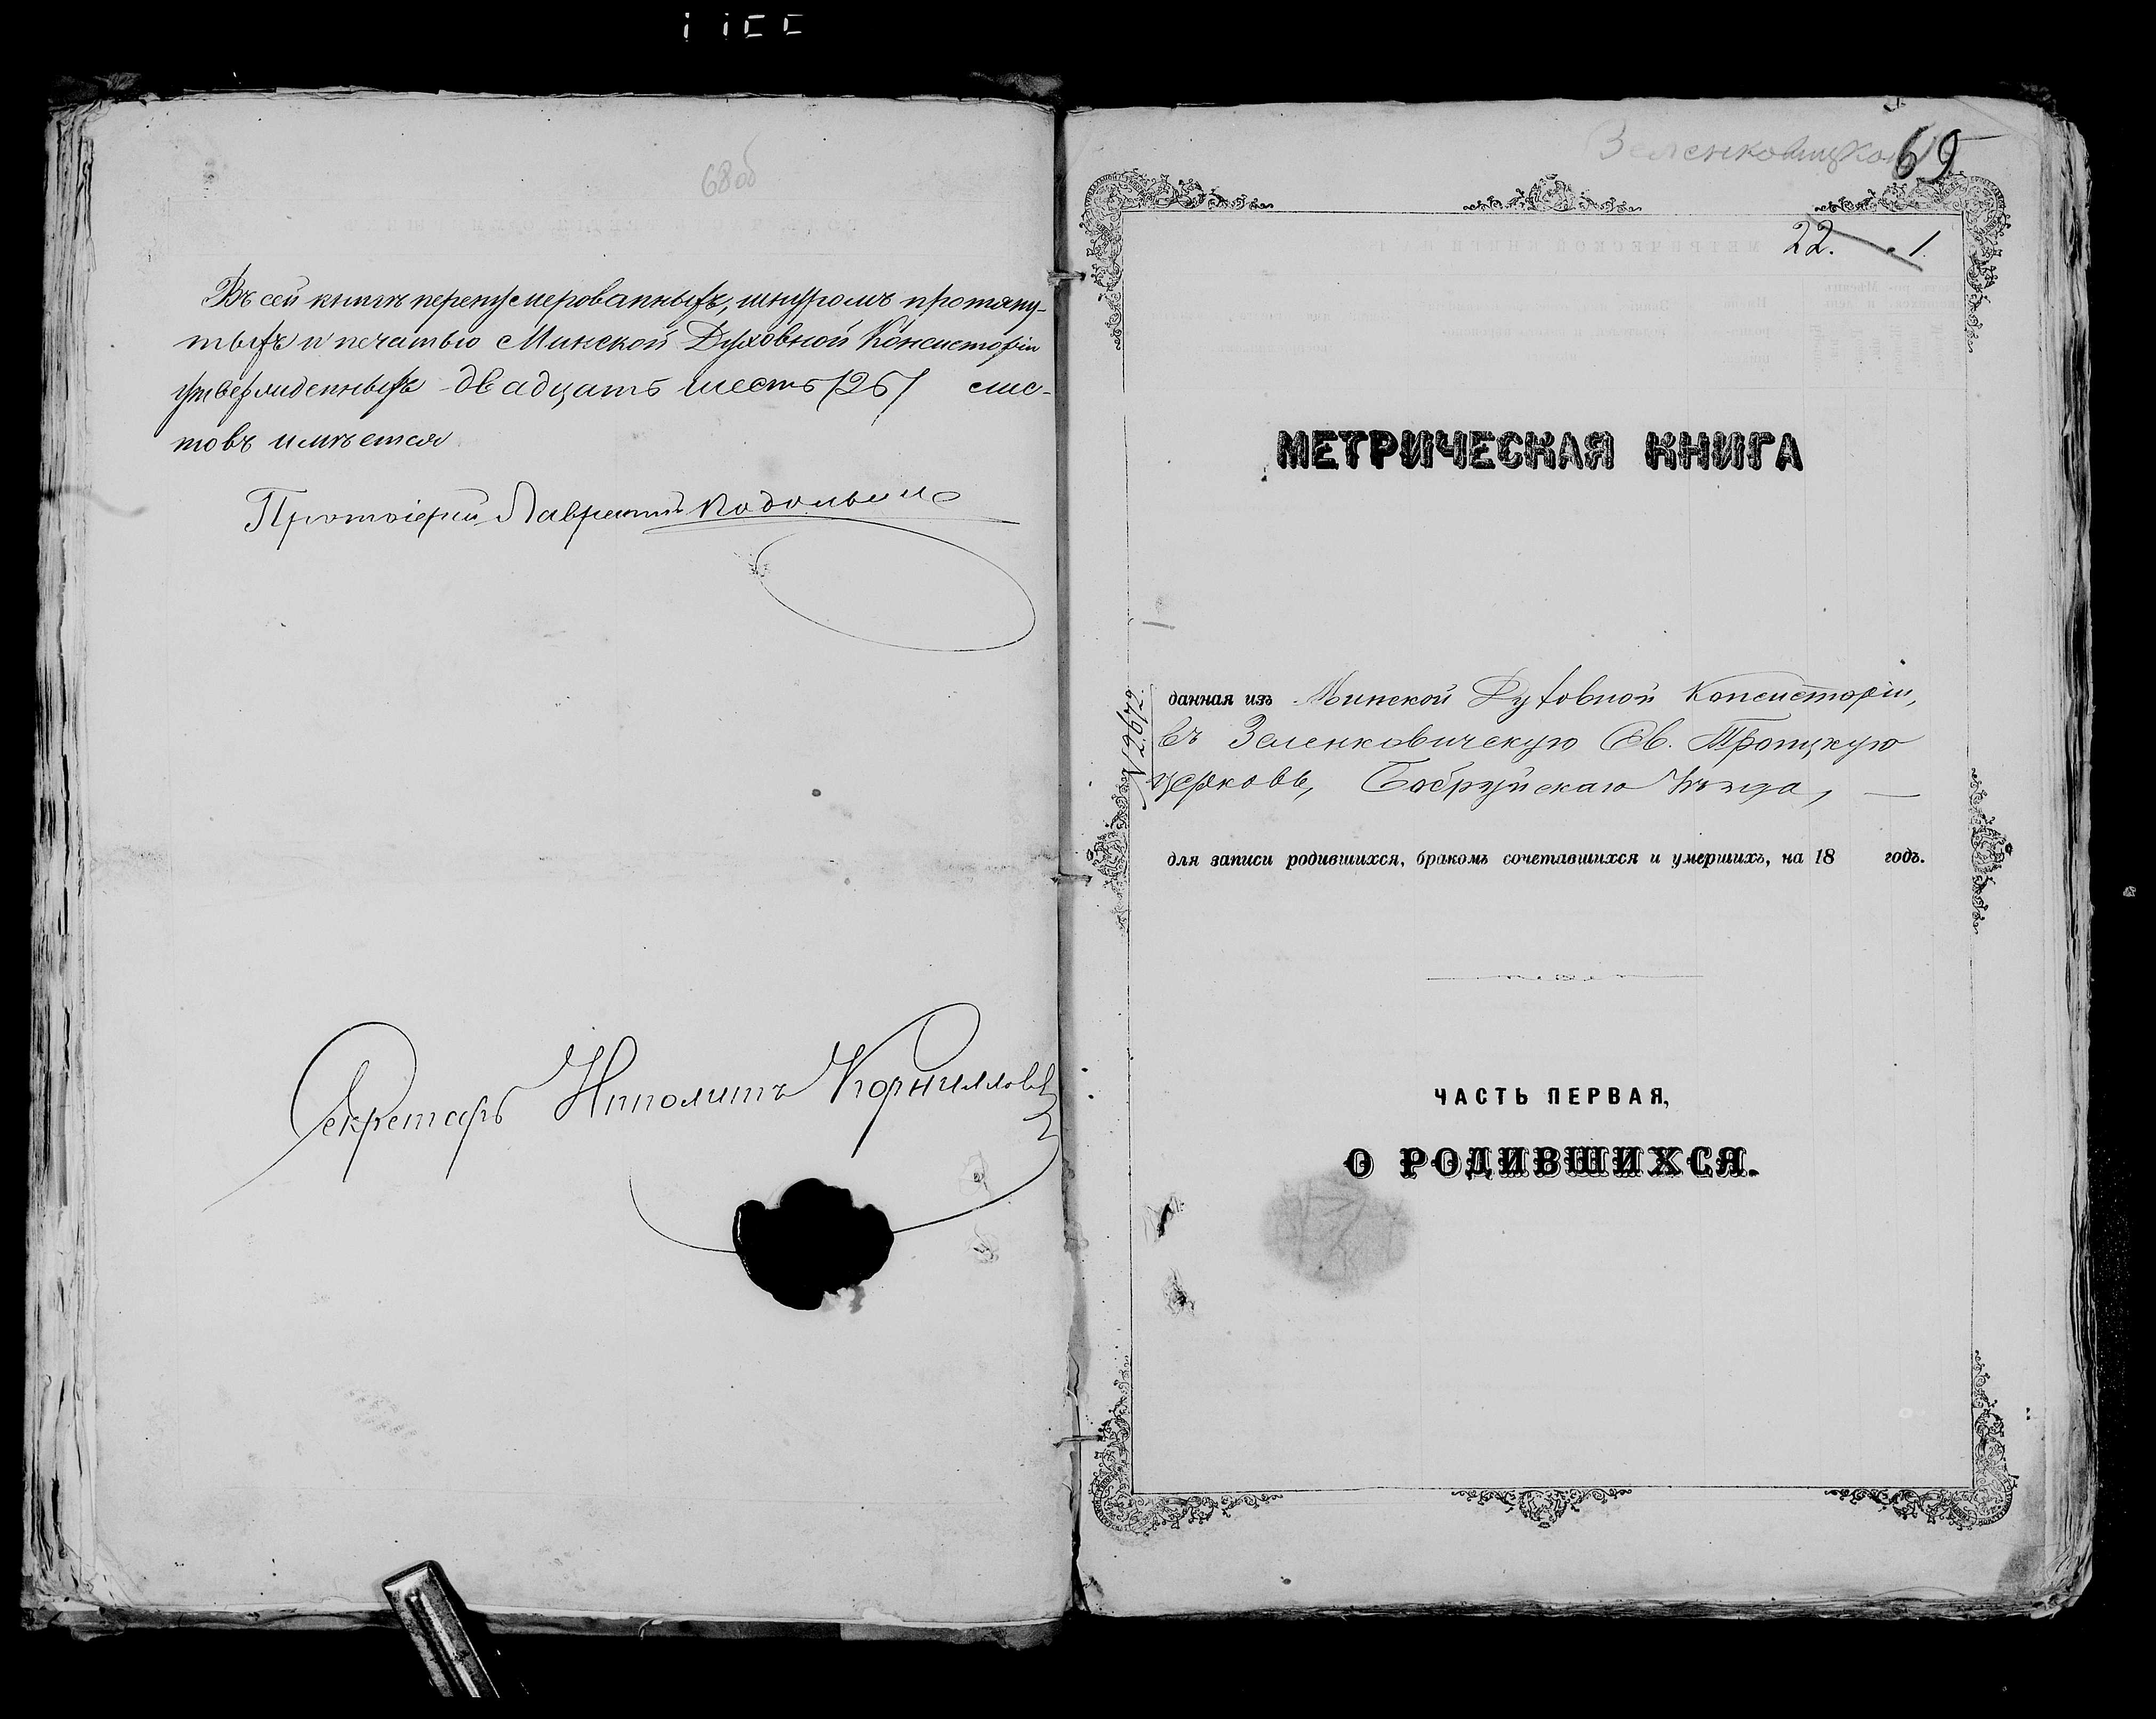 68об
Въ сей книгѣ перенумерованныхъ, шнуромъ протяну-
тыхъ и печатью Минской Духовной Консисторіи
утвержденныхъ двадцать шесть /26/ лис-
товъ имѣется
Протоіерей Лаврентій
Секретарь Ипполитъ Корниллов
Зеленковицкой
69
22. 1.
МЕТРИЧЕСКАЯ КНИГА
№ 2672.
данная изъ Минской Духовной Консисторіи,
въ Зеленковичскую Св. Троицкую
церковь, Бобруйскаго уѣзда, —
для записи родившихся, бракомъ сочетавшихся и умершихъ, на 18 годъ.
ЧАСТЬ ПЕРВАЯ,
О РОДИВШИХСЯ.